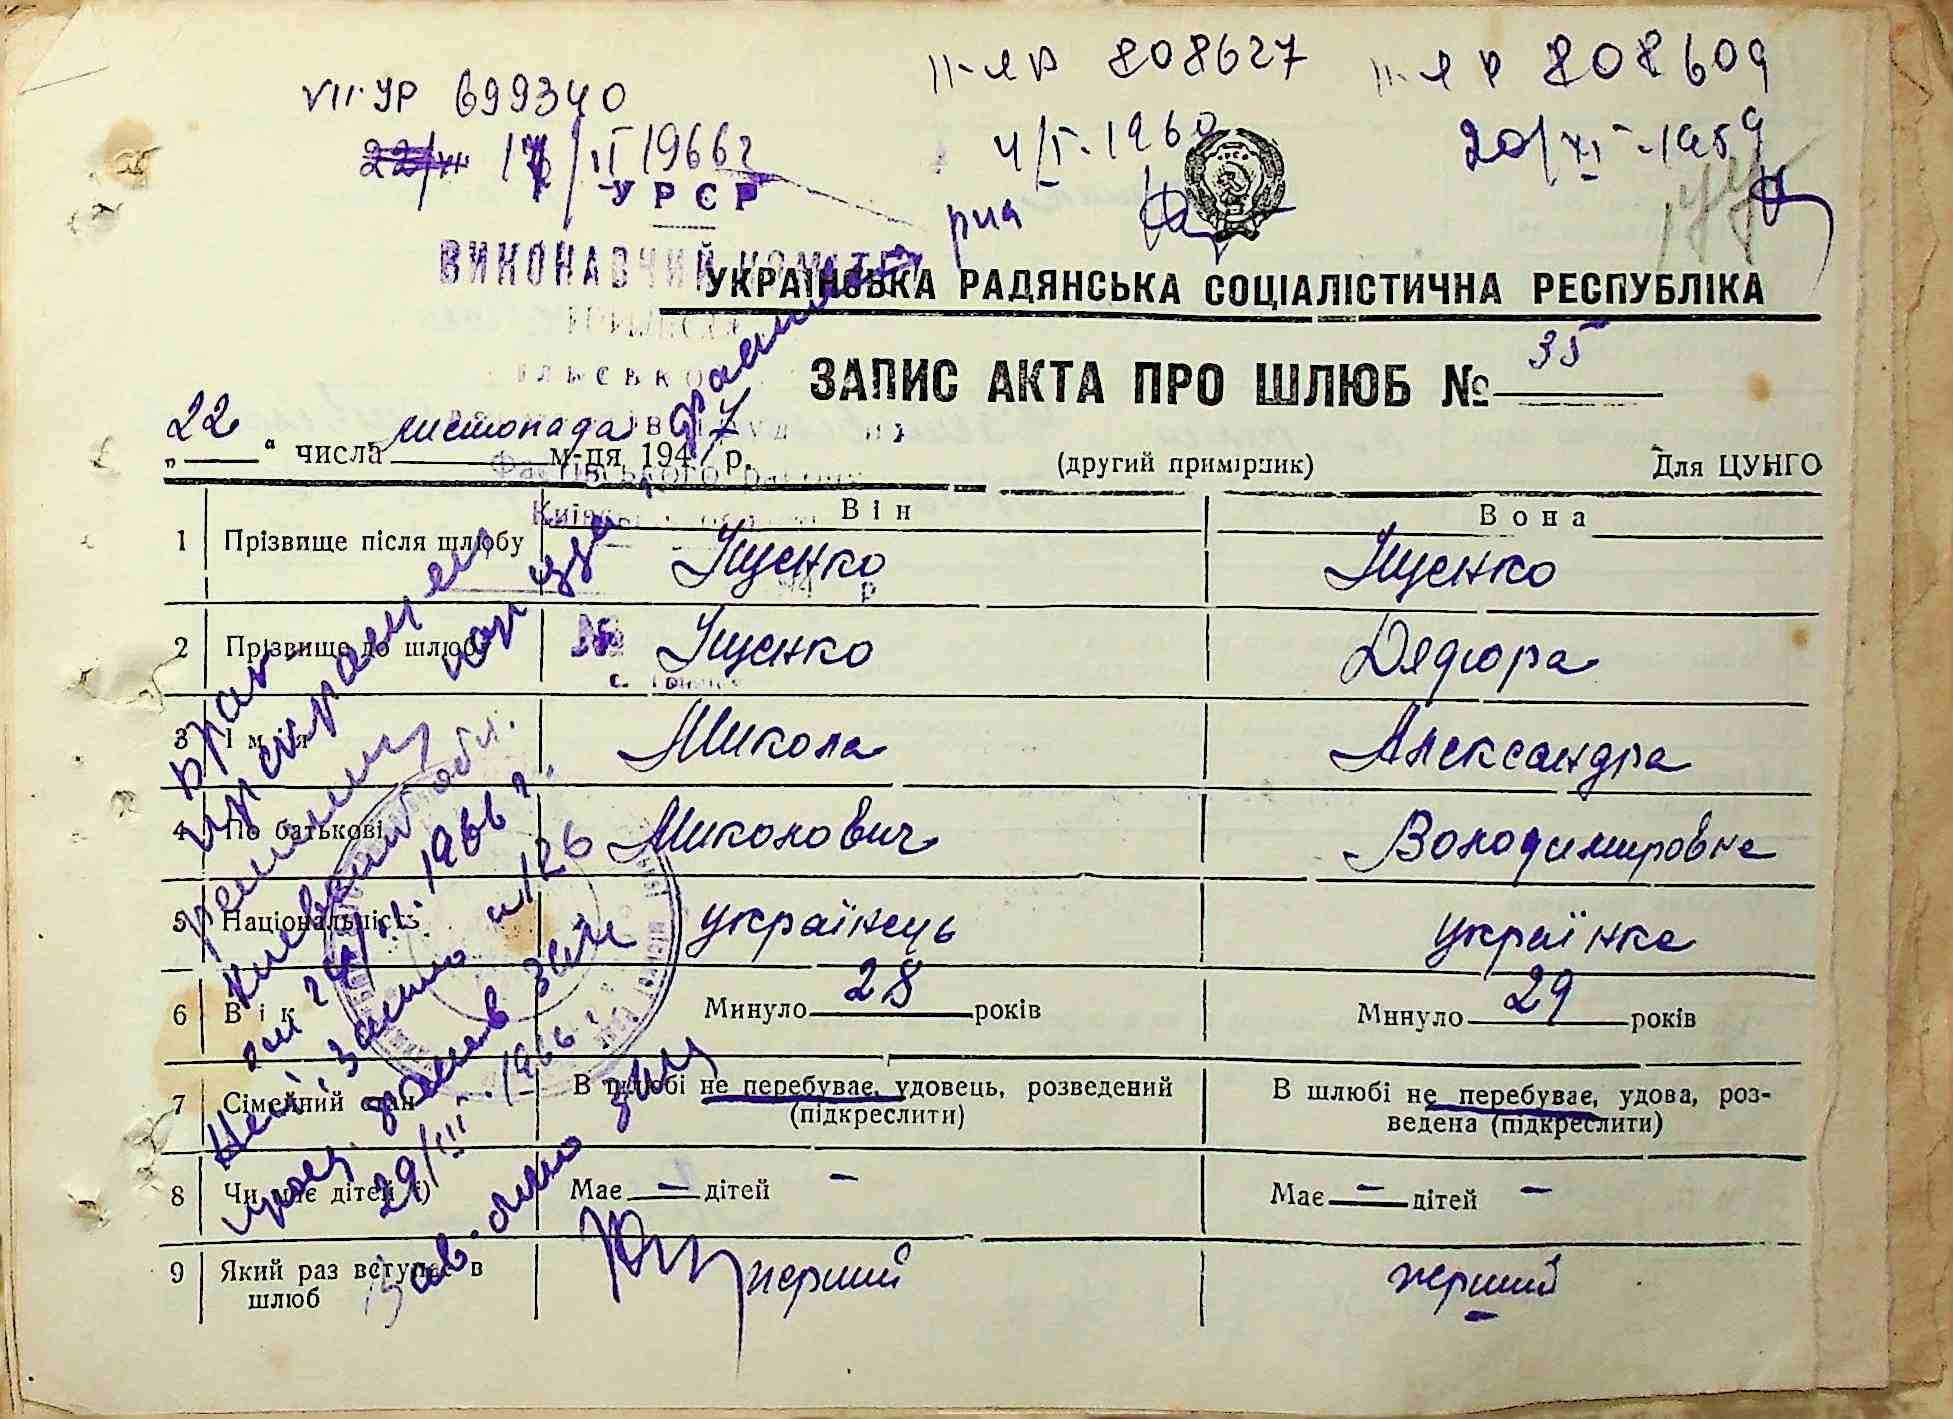 VII-УР 699340
22/VI 17/II 1966 г
II-ЯР 808627
4/I-1960
II-ЯР 808609
20/XI-1959
УРСР
ВИКОНАВЧИЙ КОМІТЕТ
УКРАЇНСЬКА РАДЯНСЬКА СОЦІАЛІСТИЧНА РЕСПУБЛІКА
ЗАПИС АКТА ПРО ШЛЮБ № 35
„22“ числа листопада м-ця 1947 р.
(другий примірник) Для ЦУНГО
Він Вона
1 Прізвище після шлюбу Іщенко Іщенко
2 Прізвище до шлюбу Іщенко Дядюра
3 Імія Микола Александра
4 По батькові Миколович Володимировна
5 Національність українець українка
6 Вік Минуло 28 років Минуло 29 років
7 Сімейний стан В шлюбі не перебуває, удовець, розведений (підкреслити) В шлюбі не перебуває, удова, розведена (підкреслити)
8 Чи має дітей Має — дітей — Має — дітей —
9 Який раз вступає в шлюб перший перший
Брак прекращен
решению
Киевский обл.
1966 г.
запись № 126
29/III-1966 г
Зав.